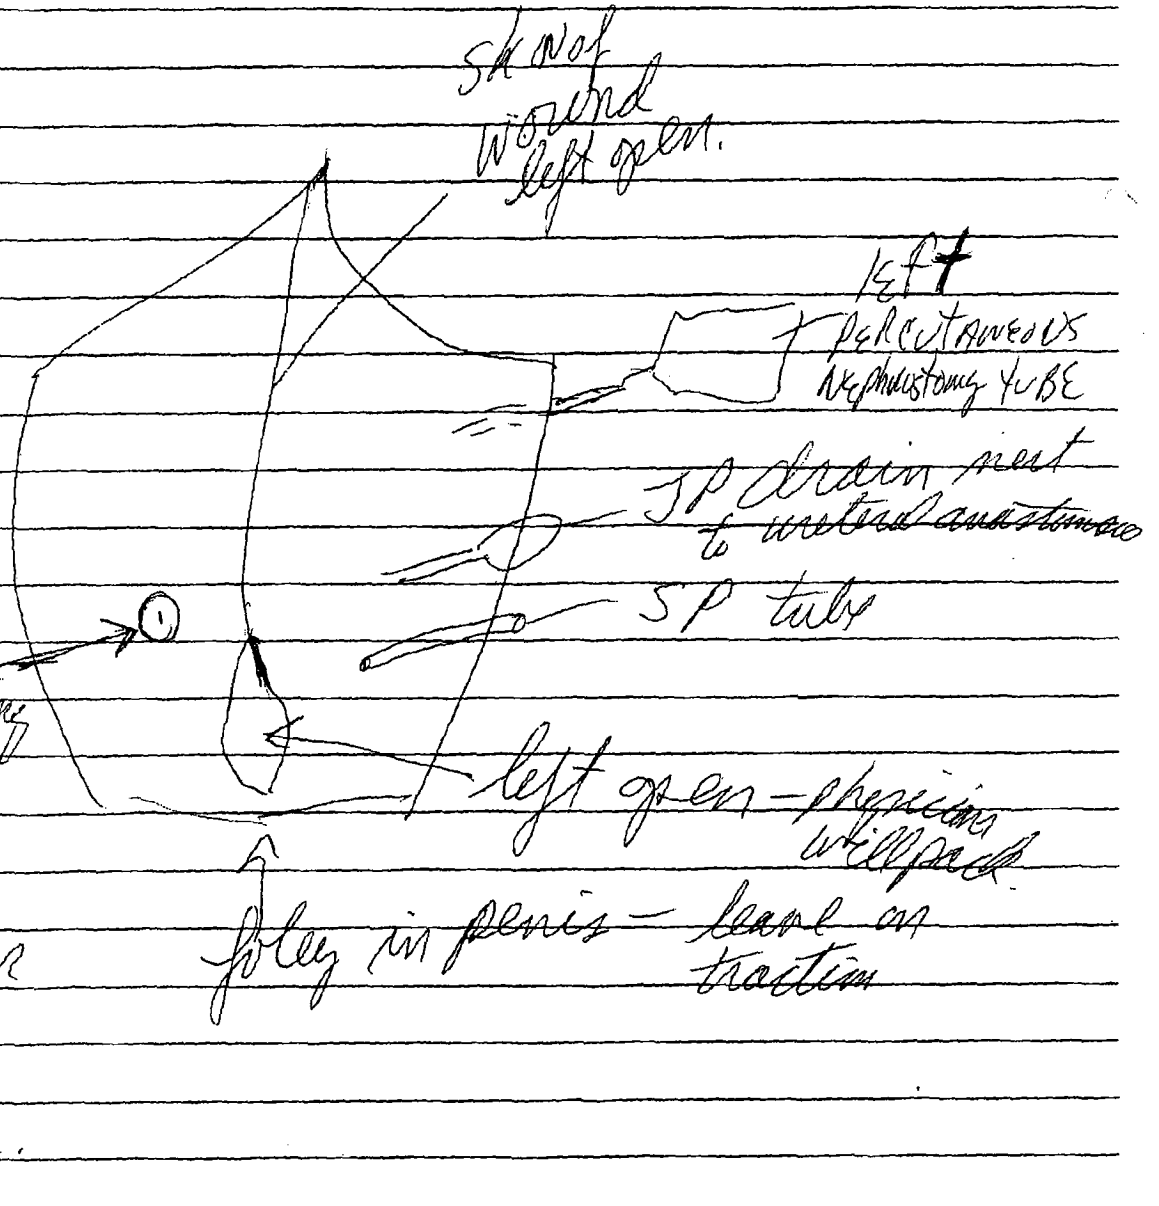 skin of
wound
left open.
left
PERCUTANEOUS
Nephrostomy TUBE
JP drain next
to ureteral anastomosis
SP tube
left open - physician
will pack
foley in penis - leave on
traction